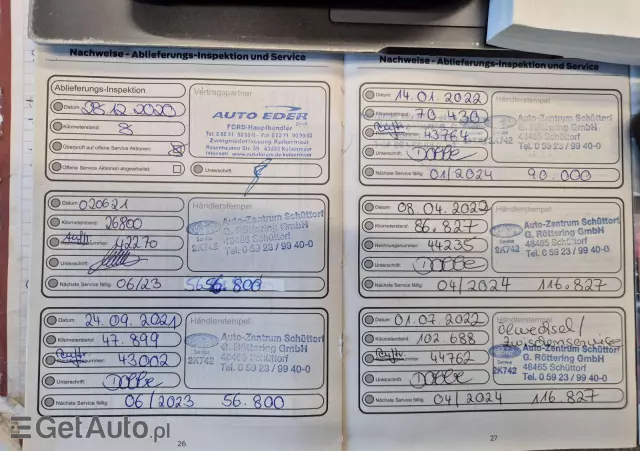 Nachweise - Ablieferungs-Inspektion und Service
Ablieferungs-Inspektion
Vertragspartner
Datum: 28.12.2020
AUTO EDER
Kilometerstand: 8
FORD-Haupthändler
Zweigniederlassung Kolbermoor
Rosenheimer Str. 59 · 83059 Kolbermoor
Überprüft auf offene Service Aktionen:
Offene Service Aktionen abgearbeitet:
Unterschrift
Datum: 020621
Händlerstempel
Kilometerstand: 26800
Auto-Zentrum Schüttorf
G. Röttering GmbH
48465 Schüttorf
Tel. 0 59 23 / 99 40-0
Service
2K742
Auftr nummer: 42270
Unterschrift:
Nächste Service fällig: 06/23 56.800
Datum: 24.09.2021
Händlerstempel:
Kilometerstand: 47.899
Auto-Zentrum Schüttorf
G. Röttering GmbH
48465 Schüttorf
Tel. 0 59 23 / 99 40-0
Service
2K742
Auftr nummer: 43002
Unterschrift: Dobbe
Nächste Service fällig: 06/2023 56.800
26
Nachweise - Ablieferungs-Inspektion und Service
Datum: 14.01.2022
Händlerstempel:
Kilometerstand: 70.430
Auto-Zentrum Schüttorf
G. Röttering GmbH
48465 Schüttorf
Tel. 0 59 23 / 99 40-0
2K742
Auftr nummer: 43764
Unterschrift: Dobbe
Nächste Service fällig: 01/2024 90.000
Datum: 08.04.2022
Händlerstempel:
Kilometerstand: 86.827
Auto-Zentrum Schüttorf
G. Röttering GmbH
48465 Schüttorf
Tel. 0 59 23 / 99 40-0
Service
2K742
Rechnungsnummer: 44235
Unterschrift: Dobbe
Nächste Service fällig: 04/2024 116.827
Datum: 01.07.2022
Händlerstempel:
Ölwechsel/
Zwischenservice
Kilometerstand: 102.688
G. Röttering GmbH
48465 Schüttorf
Tel. 0 59 23 / 99 40-0
Service
2K742
Auftr nummer: 44762
Unterschrift: Dobbe
Nächste Service fällig: 04/2024 116.827
27
GetAuto.pl